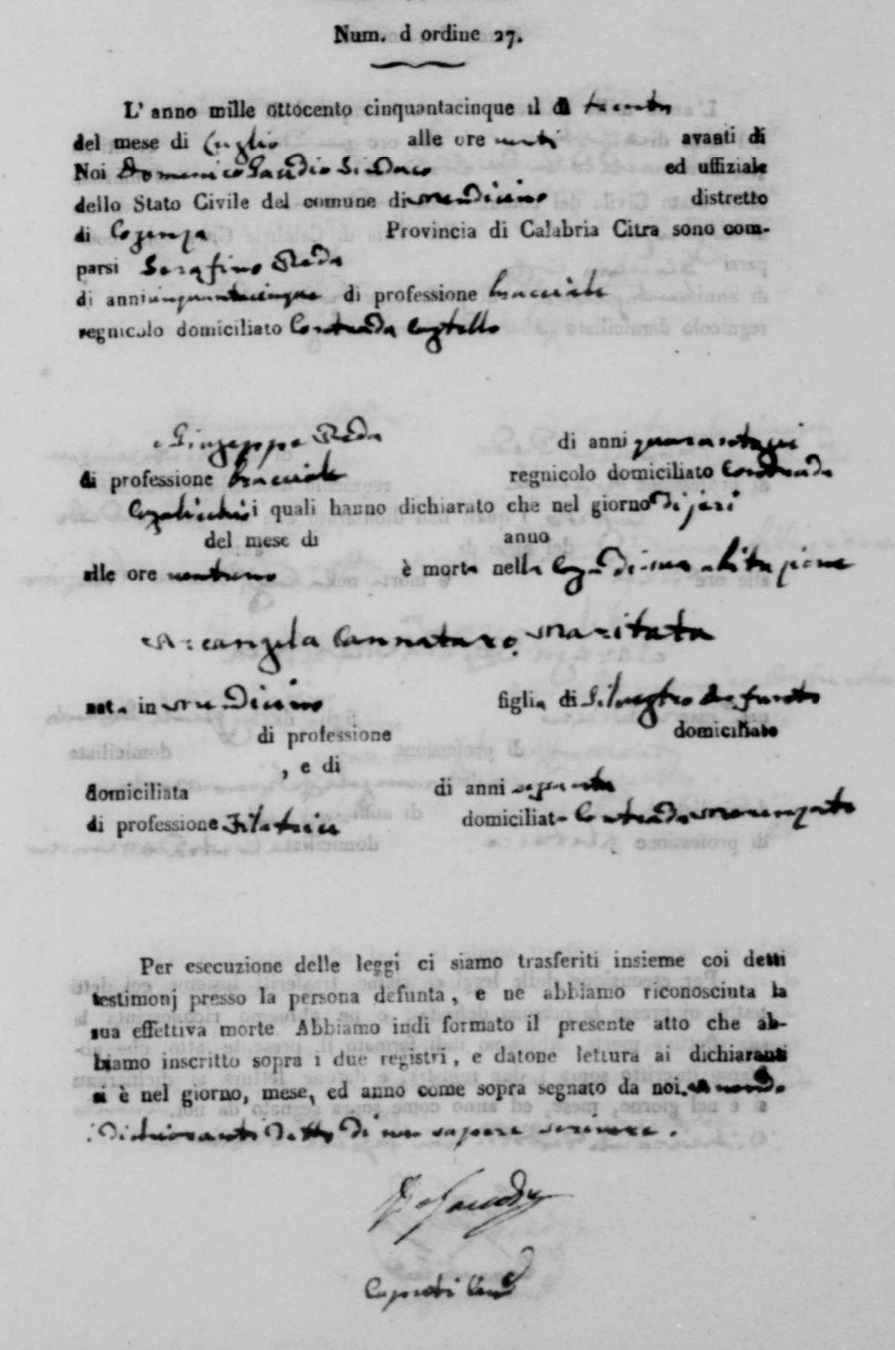 Num. d ordine 27.
L' anno mille ottocento cinquantacinque il dì trenta
del mese di Luglio alle ore venti avanti di
Noi Domenico Gaudio Sindaco ed uffiziale
dello Stato Civile del comune di Mendicino distretto
di Cosenza Provincia di Calabria Citra sono com-
parsi Serafino Reda
di anni cinquantacinque di professione bracciale
regnicolo domiciliato Contrada Castello
e Giuseppe Reda di anni quarantasei
di professione bracciale regnicolo domiciliato Contrada
i quali hanno dichiarato che nel giorno di jeri
del mese di anno
alle ore ventuno è morta nella Casa di sua abitazione
Arcangela Cannataro, Maritata
nata in Mendicino figlia di Silvestro
di professione domiciliato
, e di
domiciliata di anni sessanta
di professione Filatrice domiciliata Contrada
Per esecuzione delle leggi ci siamo trasferiti insieme coi detti
testimonj presso la persona defunta, e ne abbiamo riconosciuta la
sua effettiva morte. Abbiamo indi formato il presente atto che ab-
biamo inscritto sopra i due registri, e datone lettura ai dichiaranti
si è nel giorno, mese, ed anno come sopra segnato da noi. avendo
i Dichiaranti detto di non sapere scrivere.